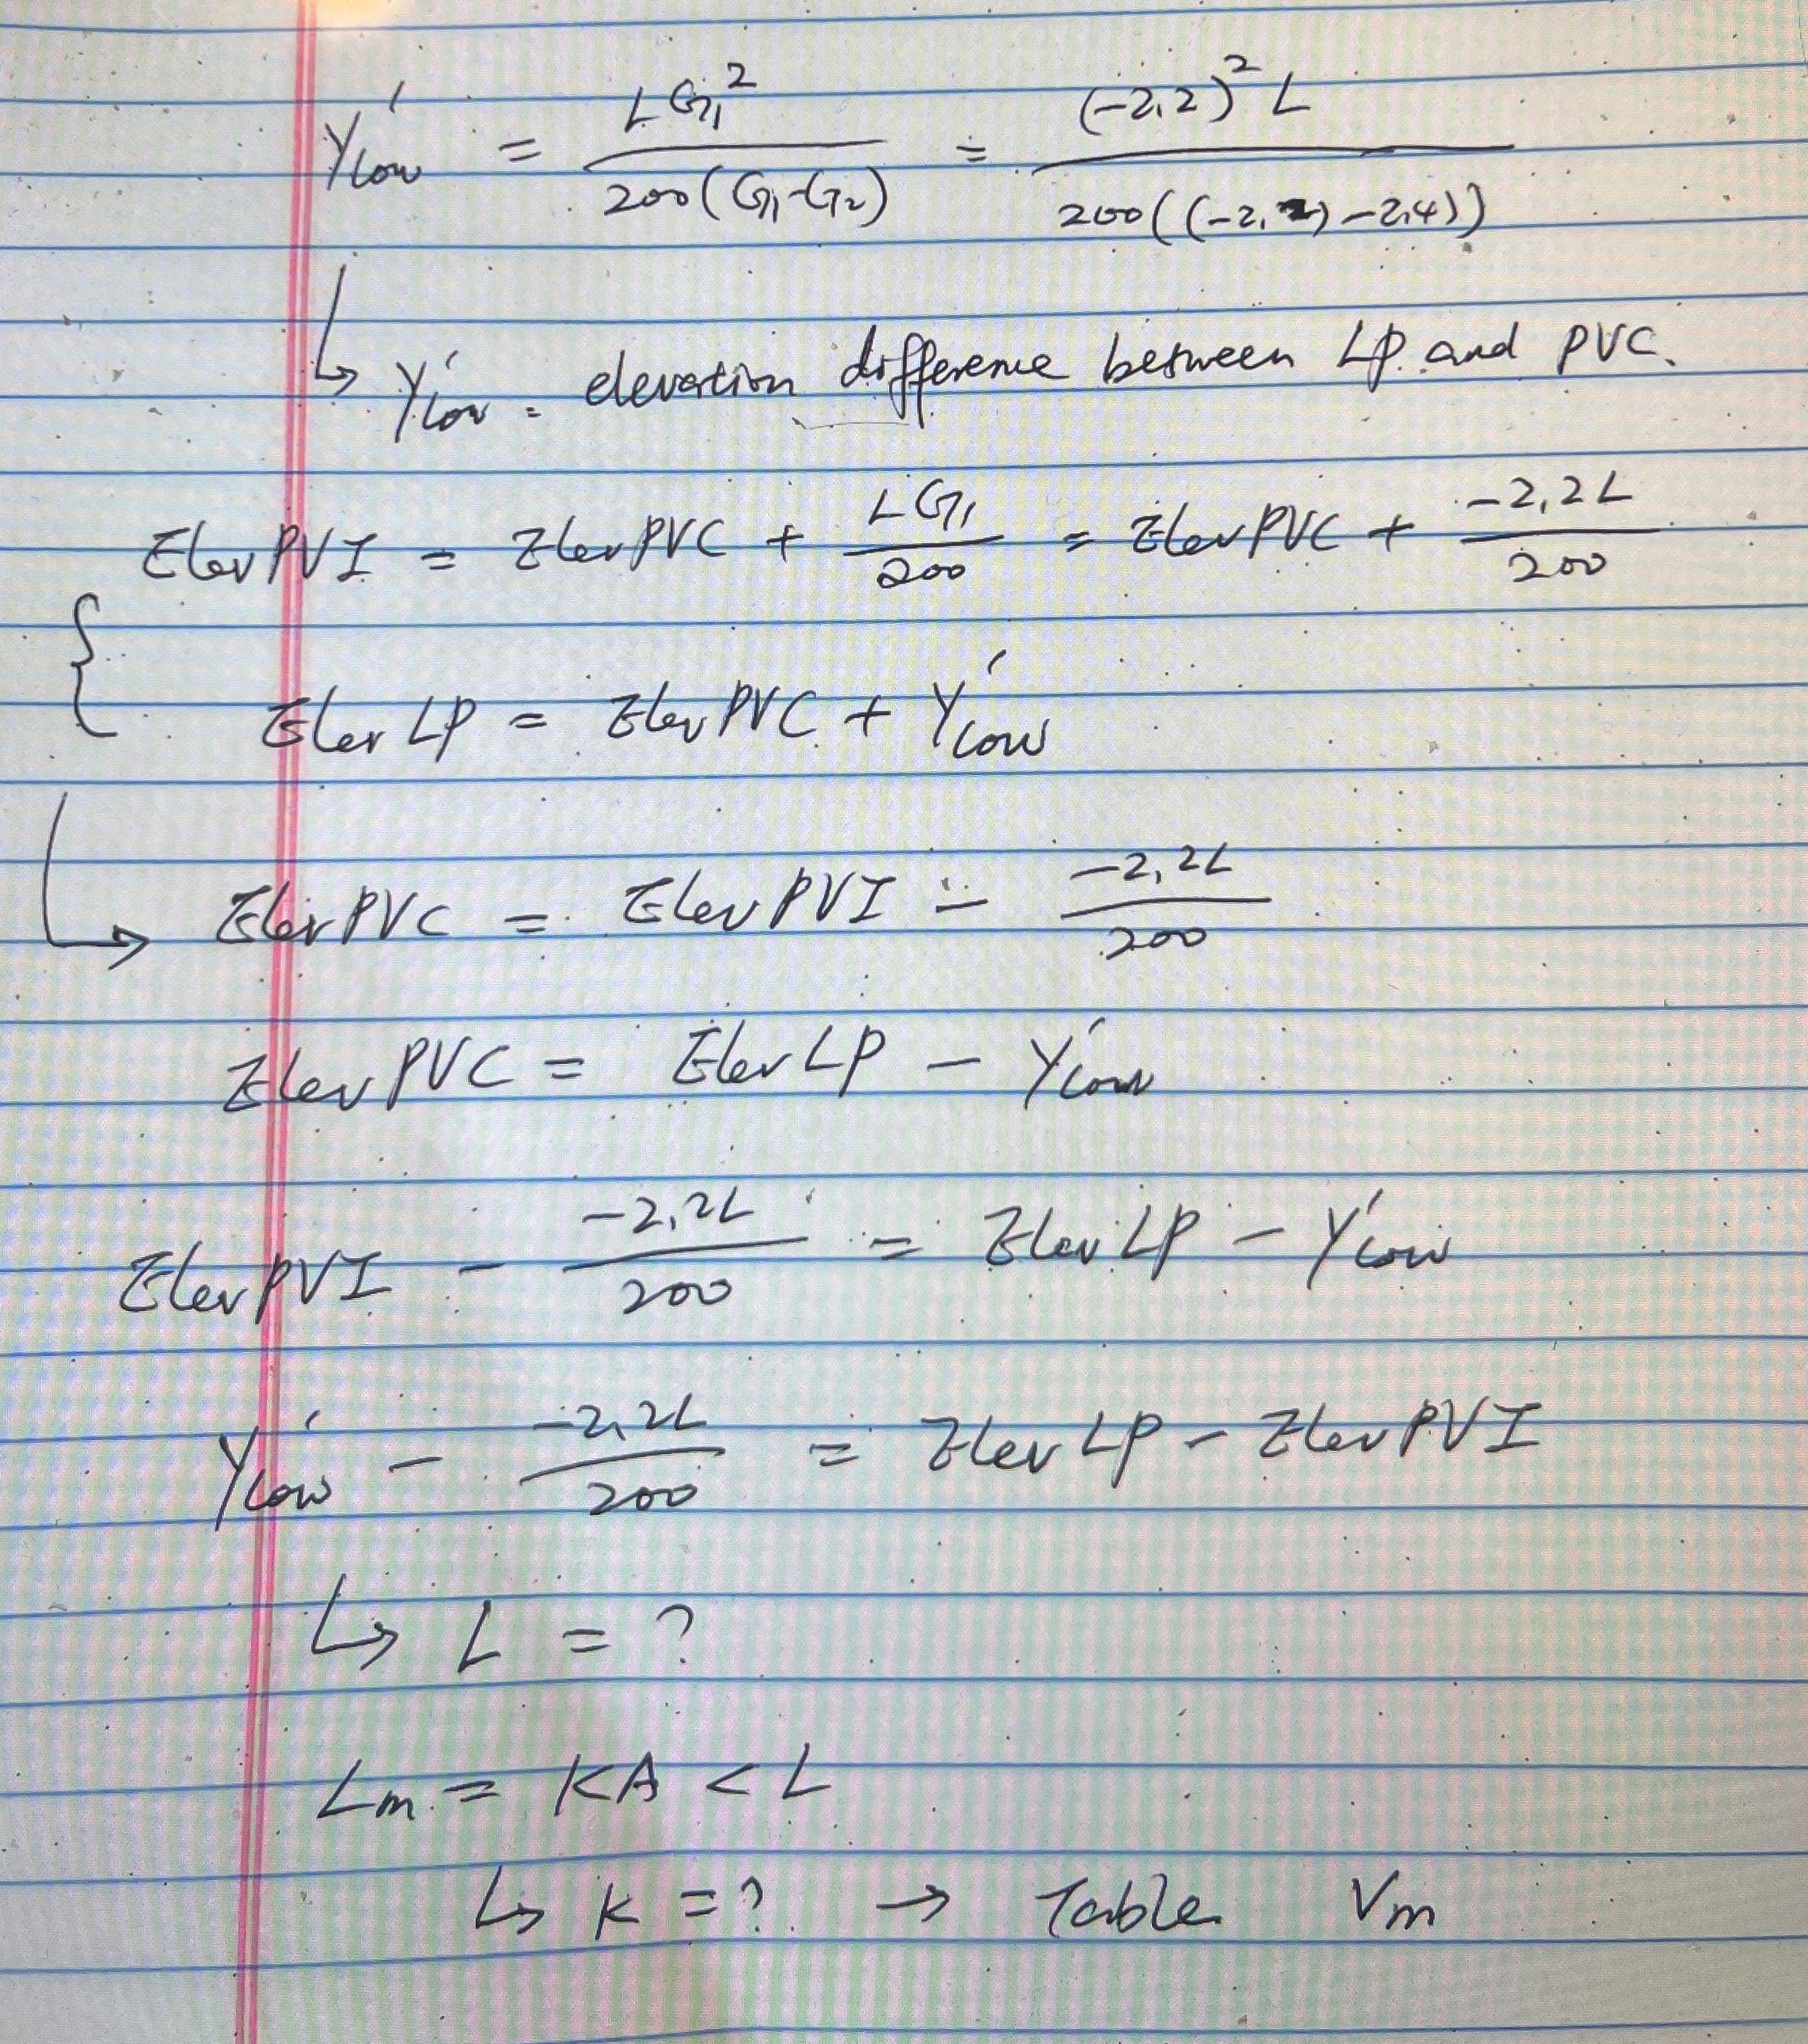 Y'low = LG₁² / 200(G₁-G₂) = (-2.2)² L / 200((-2.2) -2.4))
↳ Y'low = elevation difference between LP and PVC.
Elev PVI = Elev PVC + LG₁ / 200 = Elev PVC + -2.2L / 200
{ Elev LP = Elev PVC + Y'low
↳ Elev PVC = Elev PVI - -2.2L / 200
Elev PVC = Elev LP - Y'low
Elev PVI - -2.2L / 200 = Elev LP - Y'low
Y'low - -2.2L / 200 = Elev LP - Elev PVI
↳ L = ?
Lm = KA < L
↳ K = ? → Table Vm